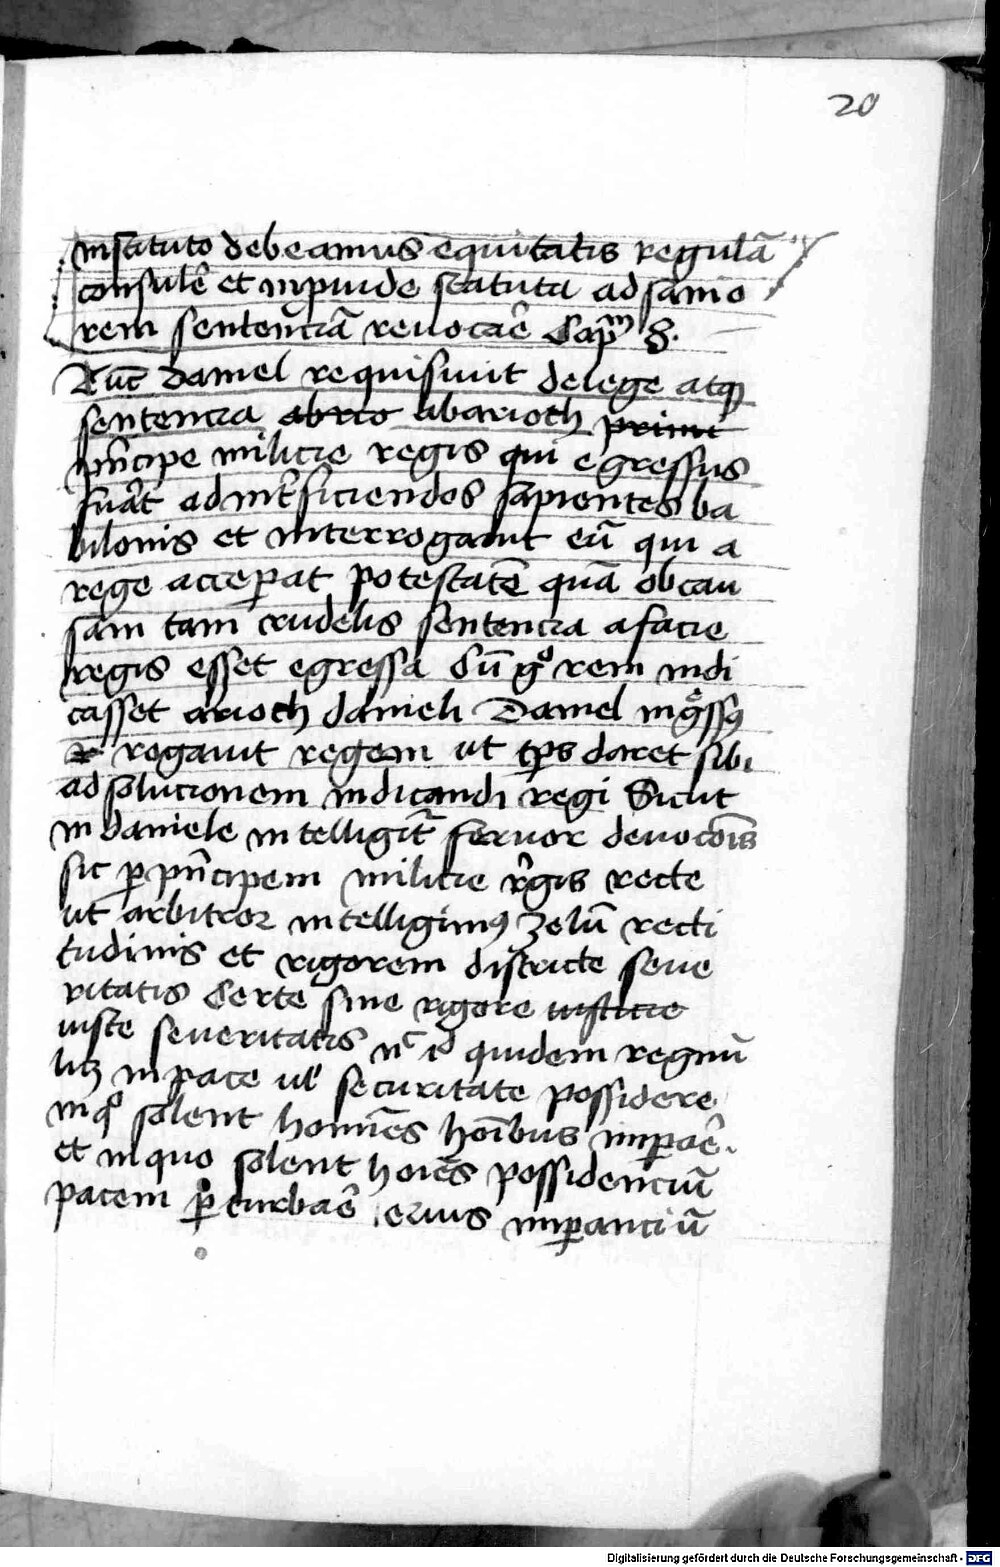 20
instituto debeamus equitatis regulā
consulē et inpuide statuta ad sanio
rem sentenciā reuocaē Cap̄m 8.
Tūc Daniel requisiuit de lege atqꝫ
sentencia abrio abarioch primi
pn̄cipe milicie regis qui egressus
fuāt ad int̄ficiendos sapientes ba
bilonis et interrogauit eū qui a
rege acceꝑat potestatē quā ob cau
sam tam crudelis sentencia a facie
regis esset egressa Cū gͦ rem indi
casset arioch danieli Daniel ingͬssꝰ
rogauit regem ut tp̄s daret sibi
ad solucionem indicandi regi Sicut
in daniele intelligit̄ feruor deuocōis
sic ꝑ pn̄cipem milicie rͤgis recte
ut arbitror intelligimꝰ zelū recti
tudinis et rigorem districte seue
ritatis Certe sine rigore iusticie
iuste seueritatis nͨ id quidem regnū
in pace ul̓ securitate possidere
in qͦ solent homīes hoībus imꝑaē.
et in quo solent hoīes possidenciū
pacem ꝑturbaē imꝑanciū
Digitalisierung gefördert durch die Deutsche Forschungsgemeinschaft - DFG